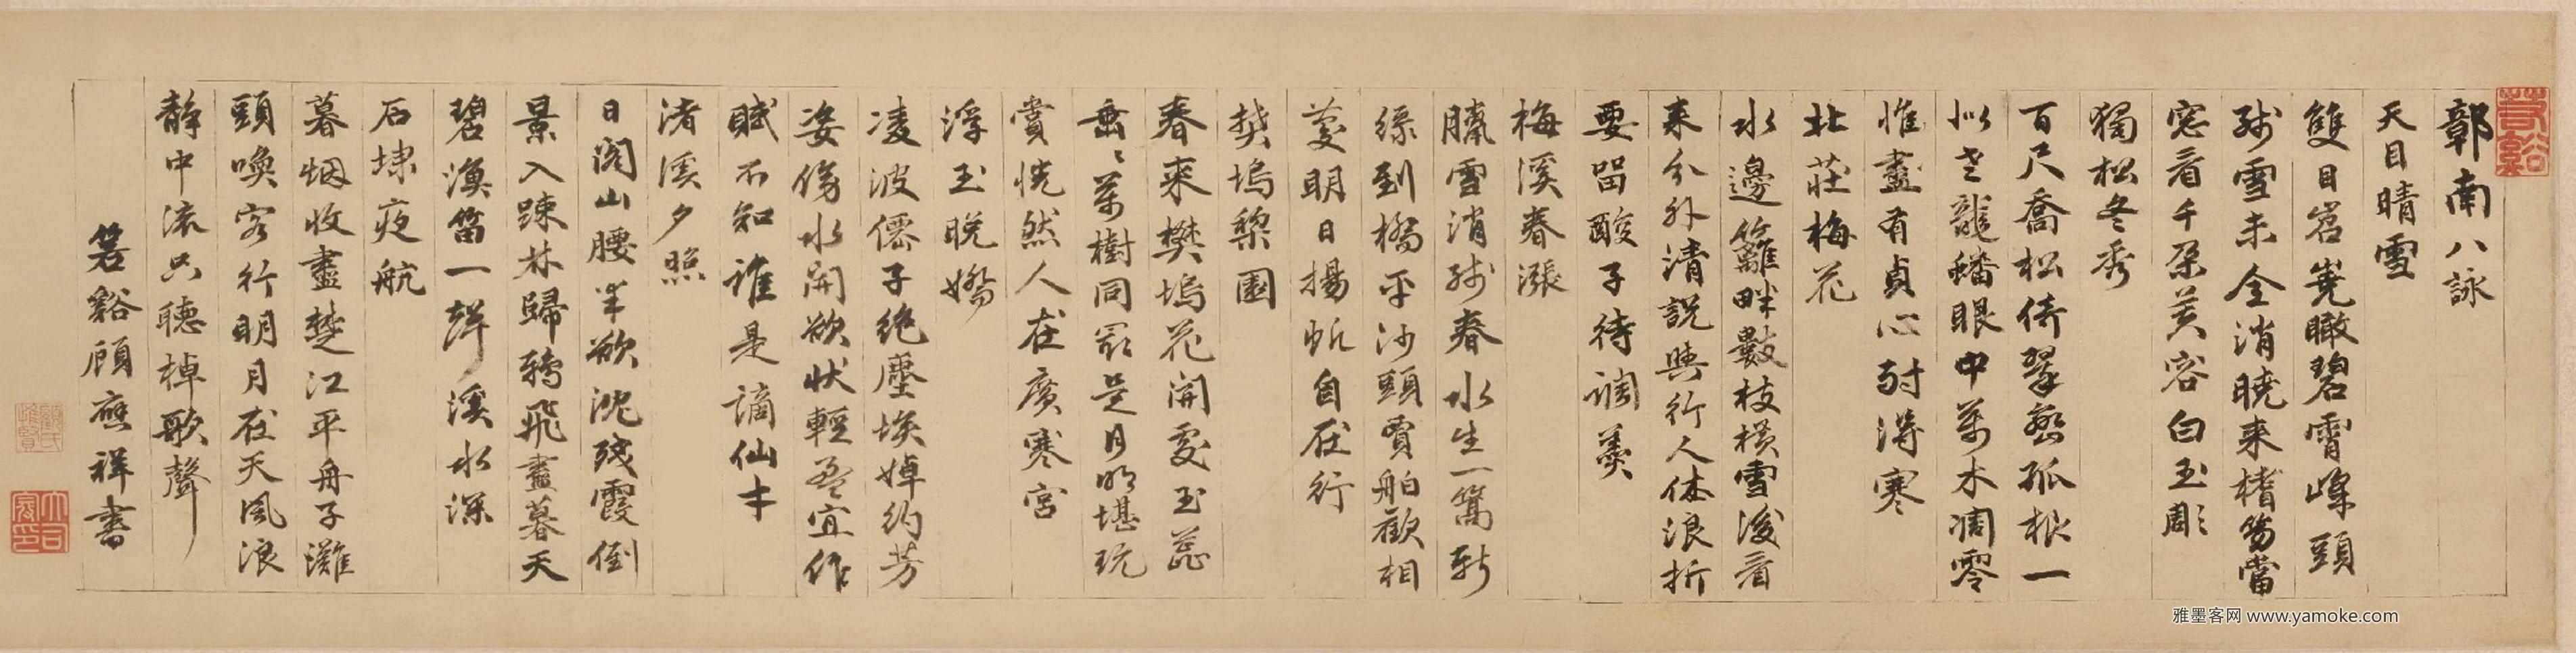 鄣南八詠
天目晴雪
雙目岧嶤瞰碧霄峰頭
殘雪未全消曉来搘笏當
窓看千朶芙容白玉彫
獨松冬秀
百尺喬松倚翠巒孤根一
似老龍蟠眼中萬木凋零
惟盡有貞心耐得寒
北莊梅花
水邊籬畔數枝橫雪後看
来分外清説與行人休浪折
要留酸子待調羹
梅溪春漲
臘雪消殘春水生一篙新
綠到橋平沙頭賈舶歡相
慶明日揚帆自在行
樊塢梨園
春来樊塢花開處玉蕊
垂垂萬樹同最是月明堪玩
賞恍然人在廣寒宮
浮玉晚嬌
凌波僊子絶塵埃婥約芳
姿傍水開欲狀輕盈宜作
賦不知誰是謫仙才
渚溪夕照
日閣山腰半欲沈殘霞倒
景入疎林歸鴉飛盡暮天
碧漁笛一聲溪水深
石埭夜航
暮烟收盡楚江平舟子灘
頭喚客行明月在天風浪
靜中流只聽棹歌聲
箬谿顧應祥書
箬谿
大司寇印
雅墨客网 www.yamoke.com